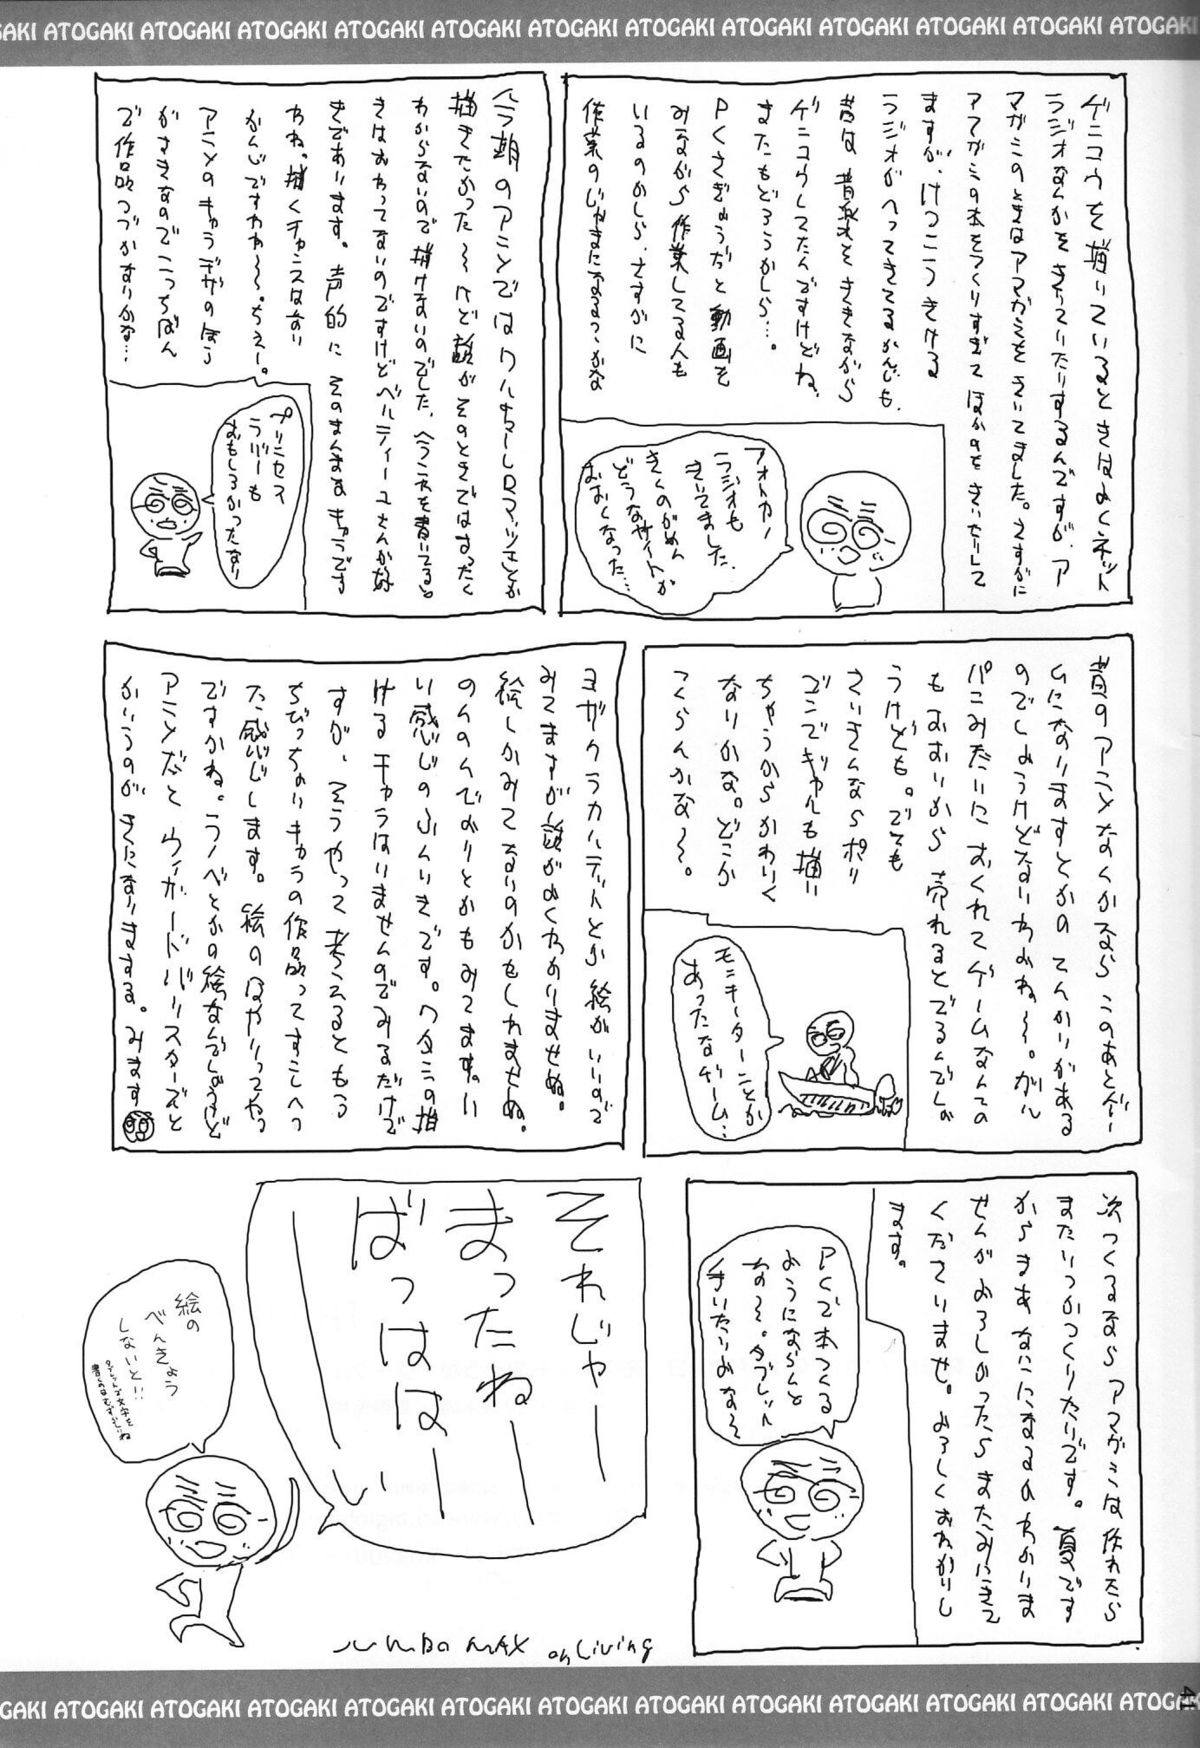 ATOGAKI ATOGAKI ATOGAKI ATOGAKI ATOGAKI ATOGAKI ATOGAKI ATOGAKI ATOGAKI ATOGAKI ATOGAKI
ゲンコウを描いているときはよくネット
ラジオなんかをきいていたりするんですが、ア
マガミのときはアマガミをきいてました。さすがに
アマガミの本をつくりすぎてほかのをきいたりして
ますが、けっこうきける
ラジオがへってきてるかんじも、
昔は音楽をききながら
ゲンコウしてたんですけどね、
またもどろうかしら…。
PCさぎょうだと動画を
みながら作業してる人も
いるのかしら、さすがに
作業のじゃまになるっつかな
フォトカノ
ラジオも
きいてました、
きくのがめん
どうなサイトが
おおくなった…
今期のアニメではワルキューレロマンツェとか
描きたかった〜けど顔がそのときではまったく
わからないので描けないのでした、
きはおわってないのですけどベルティーユさんが好
きであります。声的にそのまんまなキャラです
わね。描くチャンスはない
かんじですわね〜。ちぇー。
アニメのキャラデザのほう
がすきなのでこっちばん
で作品つづかないかな…
プリンセス
ラバーも
おもしろかったなり
昔のアニメなんかなら このあとゲー
ムになりますとかの てんかいがある
のでしょうけどないわよね〜。ガル
パンみたいにおくれてゲームなんての
もおおいから 売れるとでるんでしょ
うけども。でも
さいきんならポリ
ゴンでギャルも描い
ちゃうからかわいく
なりかな。どこか
つくらんかな〜。
モンキーターンとか
あったなゲーム…
ヨザクラカルテットとか絵がいいので
みてますが話がよくわかいませぬ。
絵しかみてないのかもしれませぬ。
のんのんびよりとかもみてます。い
い感じのふんいきです。ワタシの描
けるキャラはいませんのでみるだけで
すが、そうやって考えるともる
ちびっちゃいキャラの作品ってすこしへっ
た感じします。絵のはやりってやつ
ですかね。ラノベとかの絵なんでしょうけど
アニメだとウィザードバリスターズんと
かいうのがきになりまする。みます
次つくるなら アマガミは作れたら
またいつかつくりたいです。夏です
からまあなにになるのわかりま
せんがよろしかったらまたみにきて
くださいませ。よろしくおねがいし
ます。
PCで本つくる
ようにならんと
な〜。タブレット
それじゃー
まったねー
ばっはは〜い
絵の
べんきょう
しないと!!
タブレットで文字を
書くのはむずかしいね
JUMBO MAX on Living
41
ATOGAKI ATOGAKI ATOGAKI ATOGAKI ATOGAKI ATOGAKI ATOGAKI ATOGAKI ATOGAKI ATOGAKI ATOGAKI